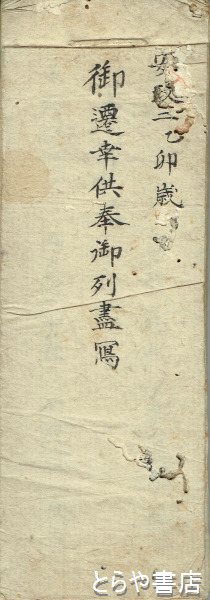 安政二乙卯歳
御遷幸供奉御列盡寫
とらや書店